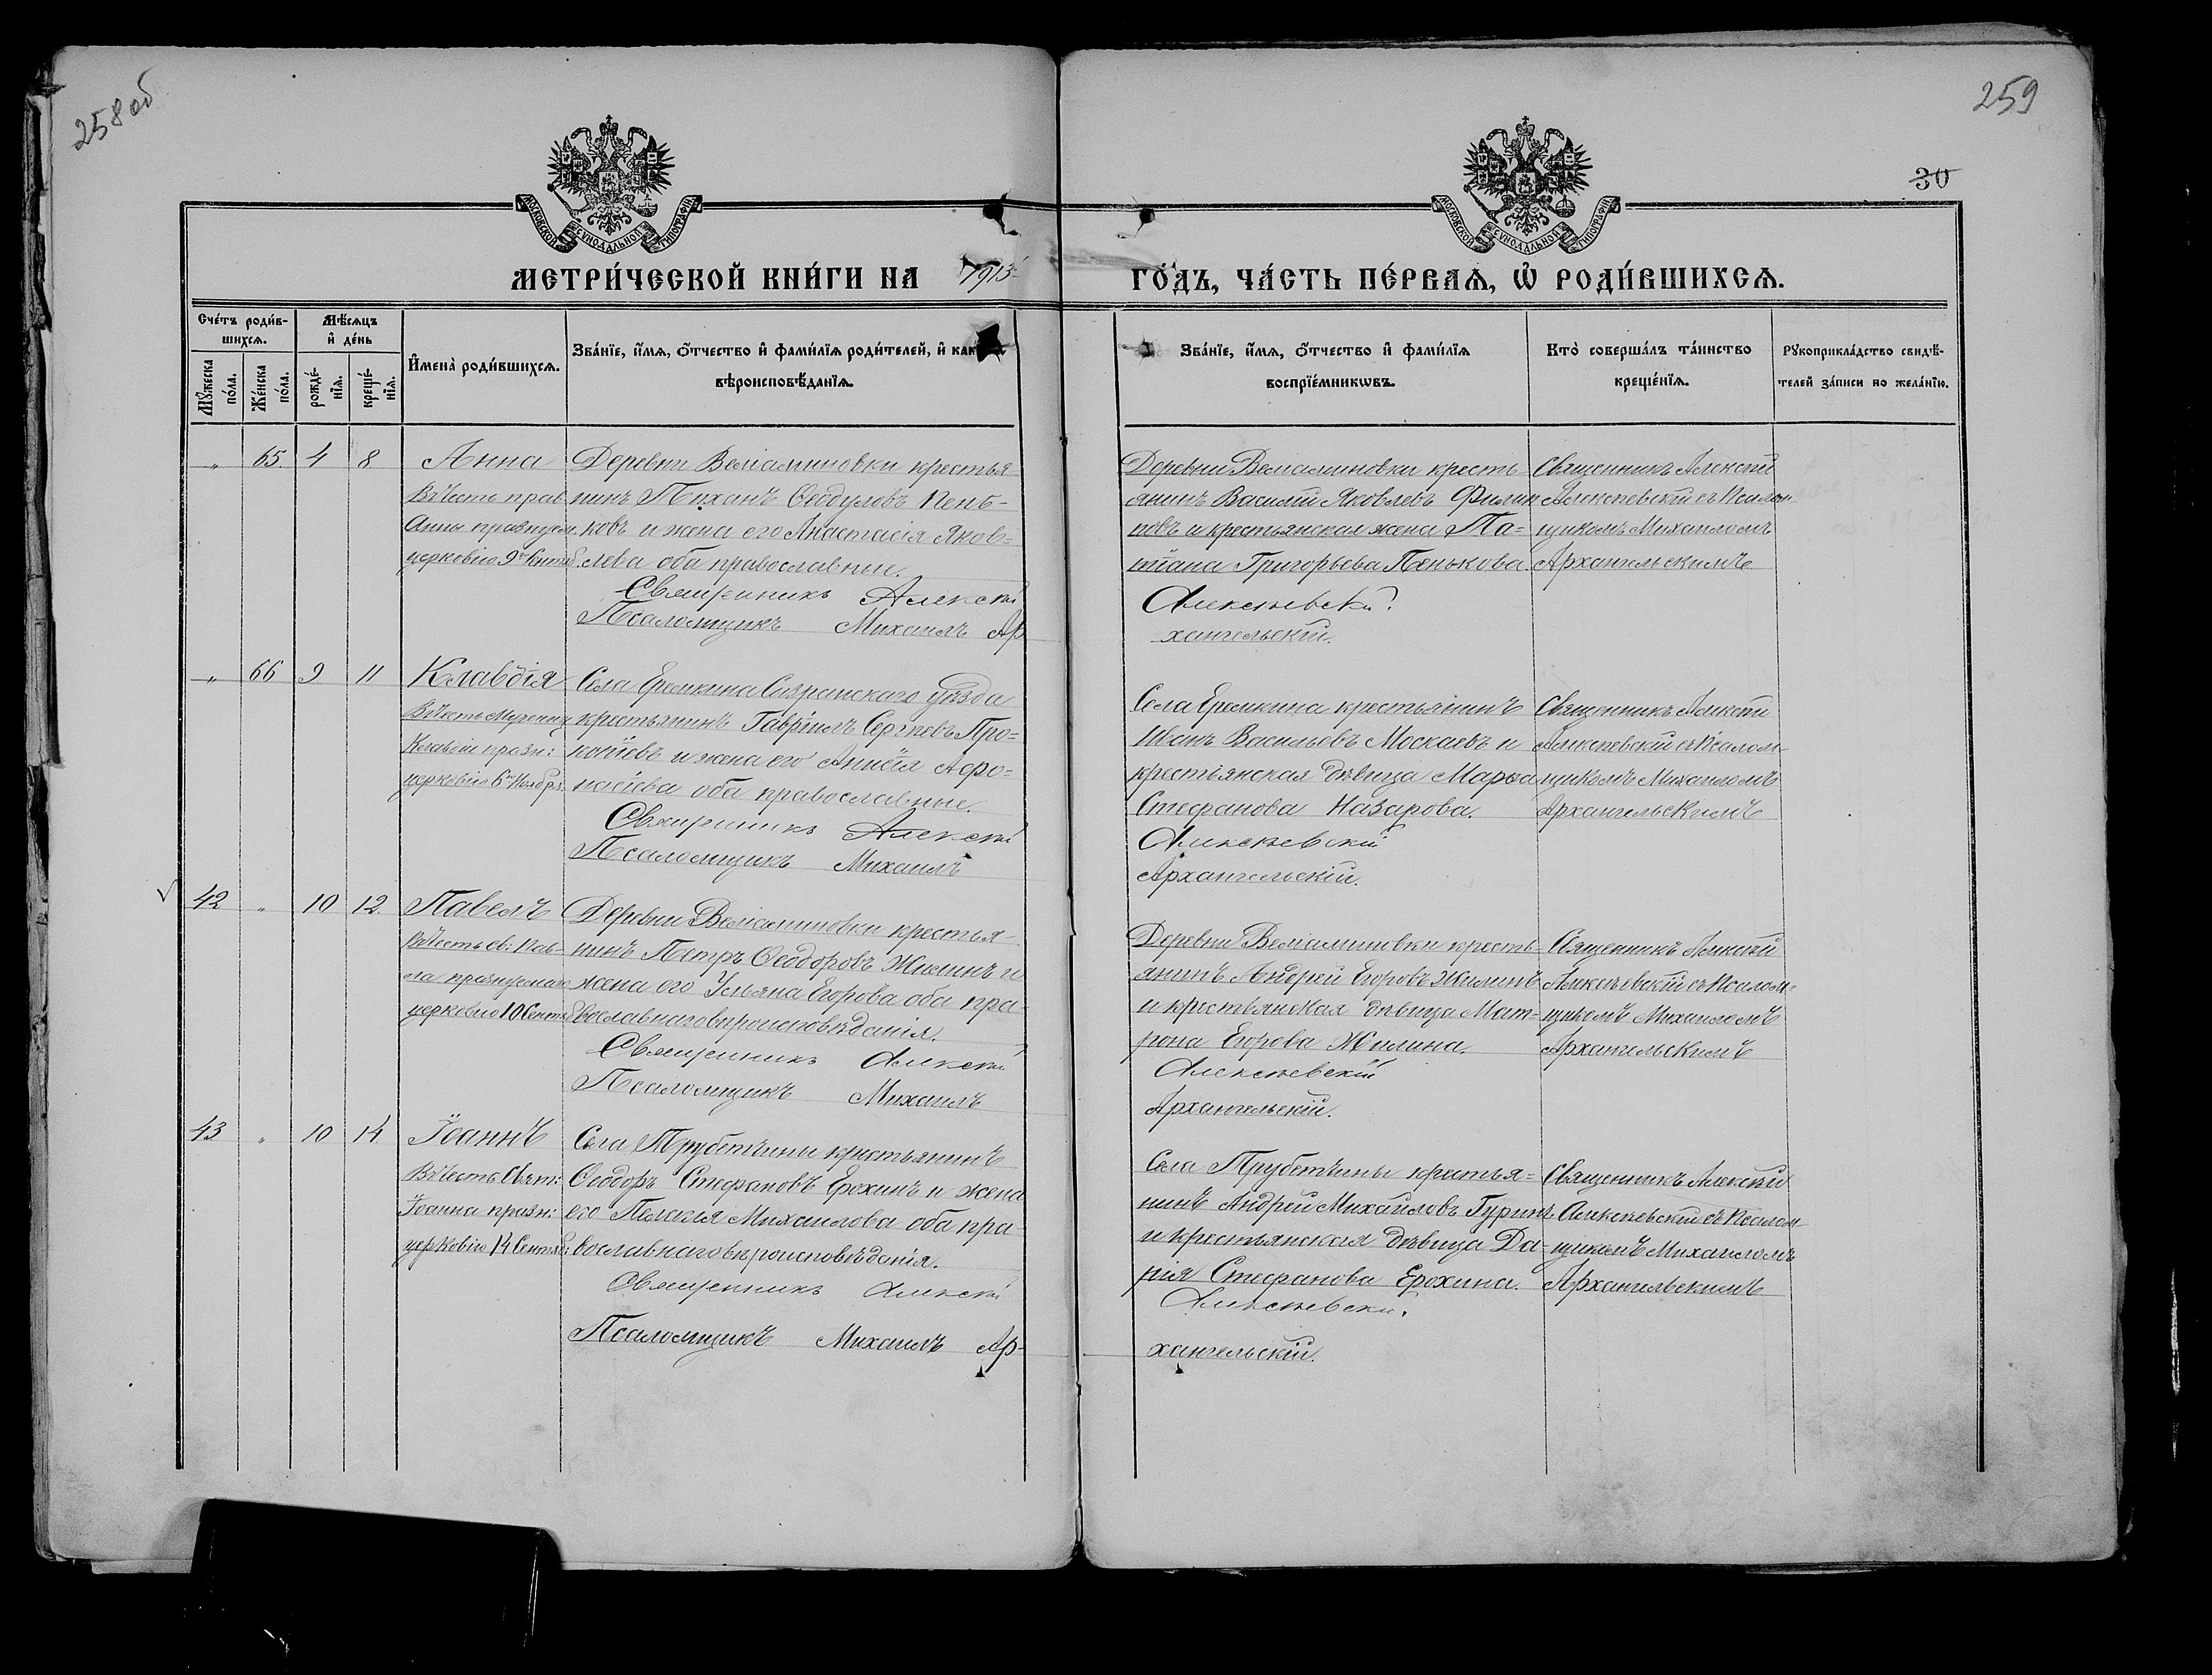 258 об
259
30
МОСКОВСКОЙ СѴНОДАЛЬНОЙ ТИПОГРАФІИ
МОСКОВСКОЙ СѴНОДАЛЬНОЙ ТИПОГРАФІИ
МЕТРИ́ЧЕСКОЙ КНИ́ГИ НА 1913 ГО́ДЪ, ЧА́СТЬ ПЕ́РВАѦ, Ѡ҆ РОДИ́ВШИХСѦ.
Сче́тъ роди́в-
шихсѧ.
Мꙋ́жеска по́ла.
Же́нска по́ла.
Мѣ́сѧцъ
и҆ де́нь
рожде́-
нїѧ.
креще́-
нїѧ.
И҆мена̀ роди́вшихсѧ.
Зва́нїе, и҆́мѧ, ѻ҆́тчество и҆ фами́лїѧ роди́телей, и҆
вѣроисповѣ́данїѧ.
Зва́нїе, и҆́мѧ, ѻ҆́тчество и҆ фами́лїѧ
воспрїе́мникѡвъ.
Кто̀ соверша́лъ та́инство
креще́нїѧ.
Рꙋкоприкла́дство свидѣ́-
телей за́писи по жела́нїю.
" 65. 4 8 Анна
Въ честь прав.
Анны празнуем.
церковію 9го Сентяб.
Деревни Веліаминовки крестья
нинъ Тиханъ Ѳеодуловъ Пень-
ковъ и жена его Анастасія Яков=
лева оба православные.
Священникъ Алексій
Псаломщикъ Михаилъ Ар
Деревни Веліаминовки кресть-
янинъ Василій Яковлевъ Филип
повъ и крестьянская жена Та=
тіана Григорьева Пенькова.
Алексѣевскій.
хангельскій.
Священникъ Алексій
Алексѣевскій съ Псалом
щикомъ Михаиломъ
Архангельскимъ
" 66 9 11 Клавдія
Въ честь Мучениц
Клавдіи празн:
церковію 6го Ноябр.
Села Еремкина Сызранскаго Уѣзда
крестьянинъ Гавріилъ Сергѣевъ Про=
копіевъ и жена его Анисія Афо=
насіева оба православные.
Священникъ Алексій
Псаломщикъ Михаилъ
Села Еремкина крестьянинъ
Иванъ Васильевъ Москаевъ и
крестьянская дѣвица Марѳа
Стефанова Назарова.
Алексѣевскій
Архангельскій.
Священникъ Алексѣй
Алексѣевскій съ Псалом-
щикомъ Михаиломъ
Архангельскимъ
42 " 10 12. Павелъ
Въ честь св: Пав-
ла празднуемаго
церковію 10 Сентяб
Деревни Веліаминовки крестья-
нинъ Петръ Ѳеодоровъ Жилинъ и
жена его Ульяна Егорова оба пра-
вославнаго вѣроисповѣданія.
Священникъ Алексій
Псаломщикъ Михаилъ
Деревни Веліаминовки кресть-
янинъ Андрей Егоровъ Жилинъ
и крестьянская дѣвица Мат=
рона Егорова Жилина.
Алексѣевскій
Архангельскій.
Священникъ Алексѣй
Алексѣевскій съ Псалом=
щикомъ Михаиломъ
Архангельскимъ
43 " 10 14 Іоаннъ
Въ честь Свят:
Іоанна празн:
церковію 14 Сентяб:
Села Трубетчины крестьянинъ
Ѳеодоръ Стефановъ Ерохинъ и жена
его Пелагія Михаилова оба пра-
вославнаго вѣроисповѣданія.
Священникъ Алексій
Псаломщикъ Михаилъ Ар-
Села Трубетчины крестья=
нинъ Андрей Михайловъ Гуринъ
и крестьянская дѣвица Да-
рія Стефанова Ерохина.
Алексѣевскій.
хангельскій.
Священникъ Алексѣй
Алексѣевскій съ Псалом
щикомъ Михаиломъ
Архангельскимъ